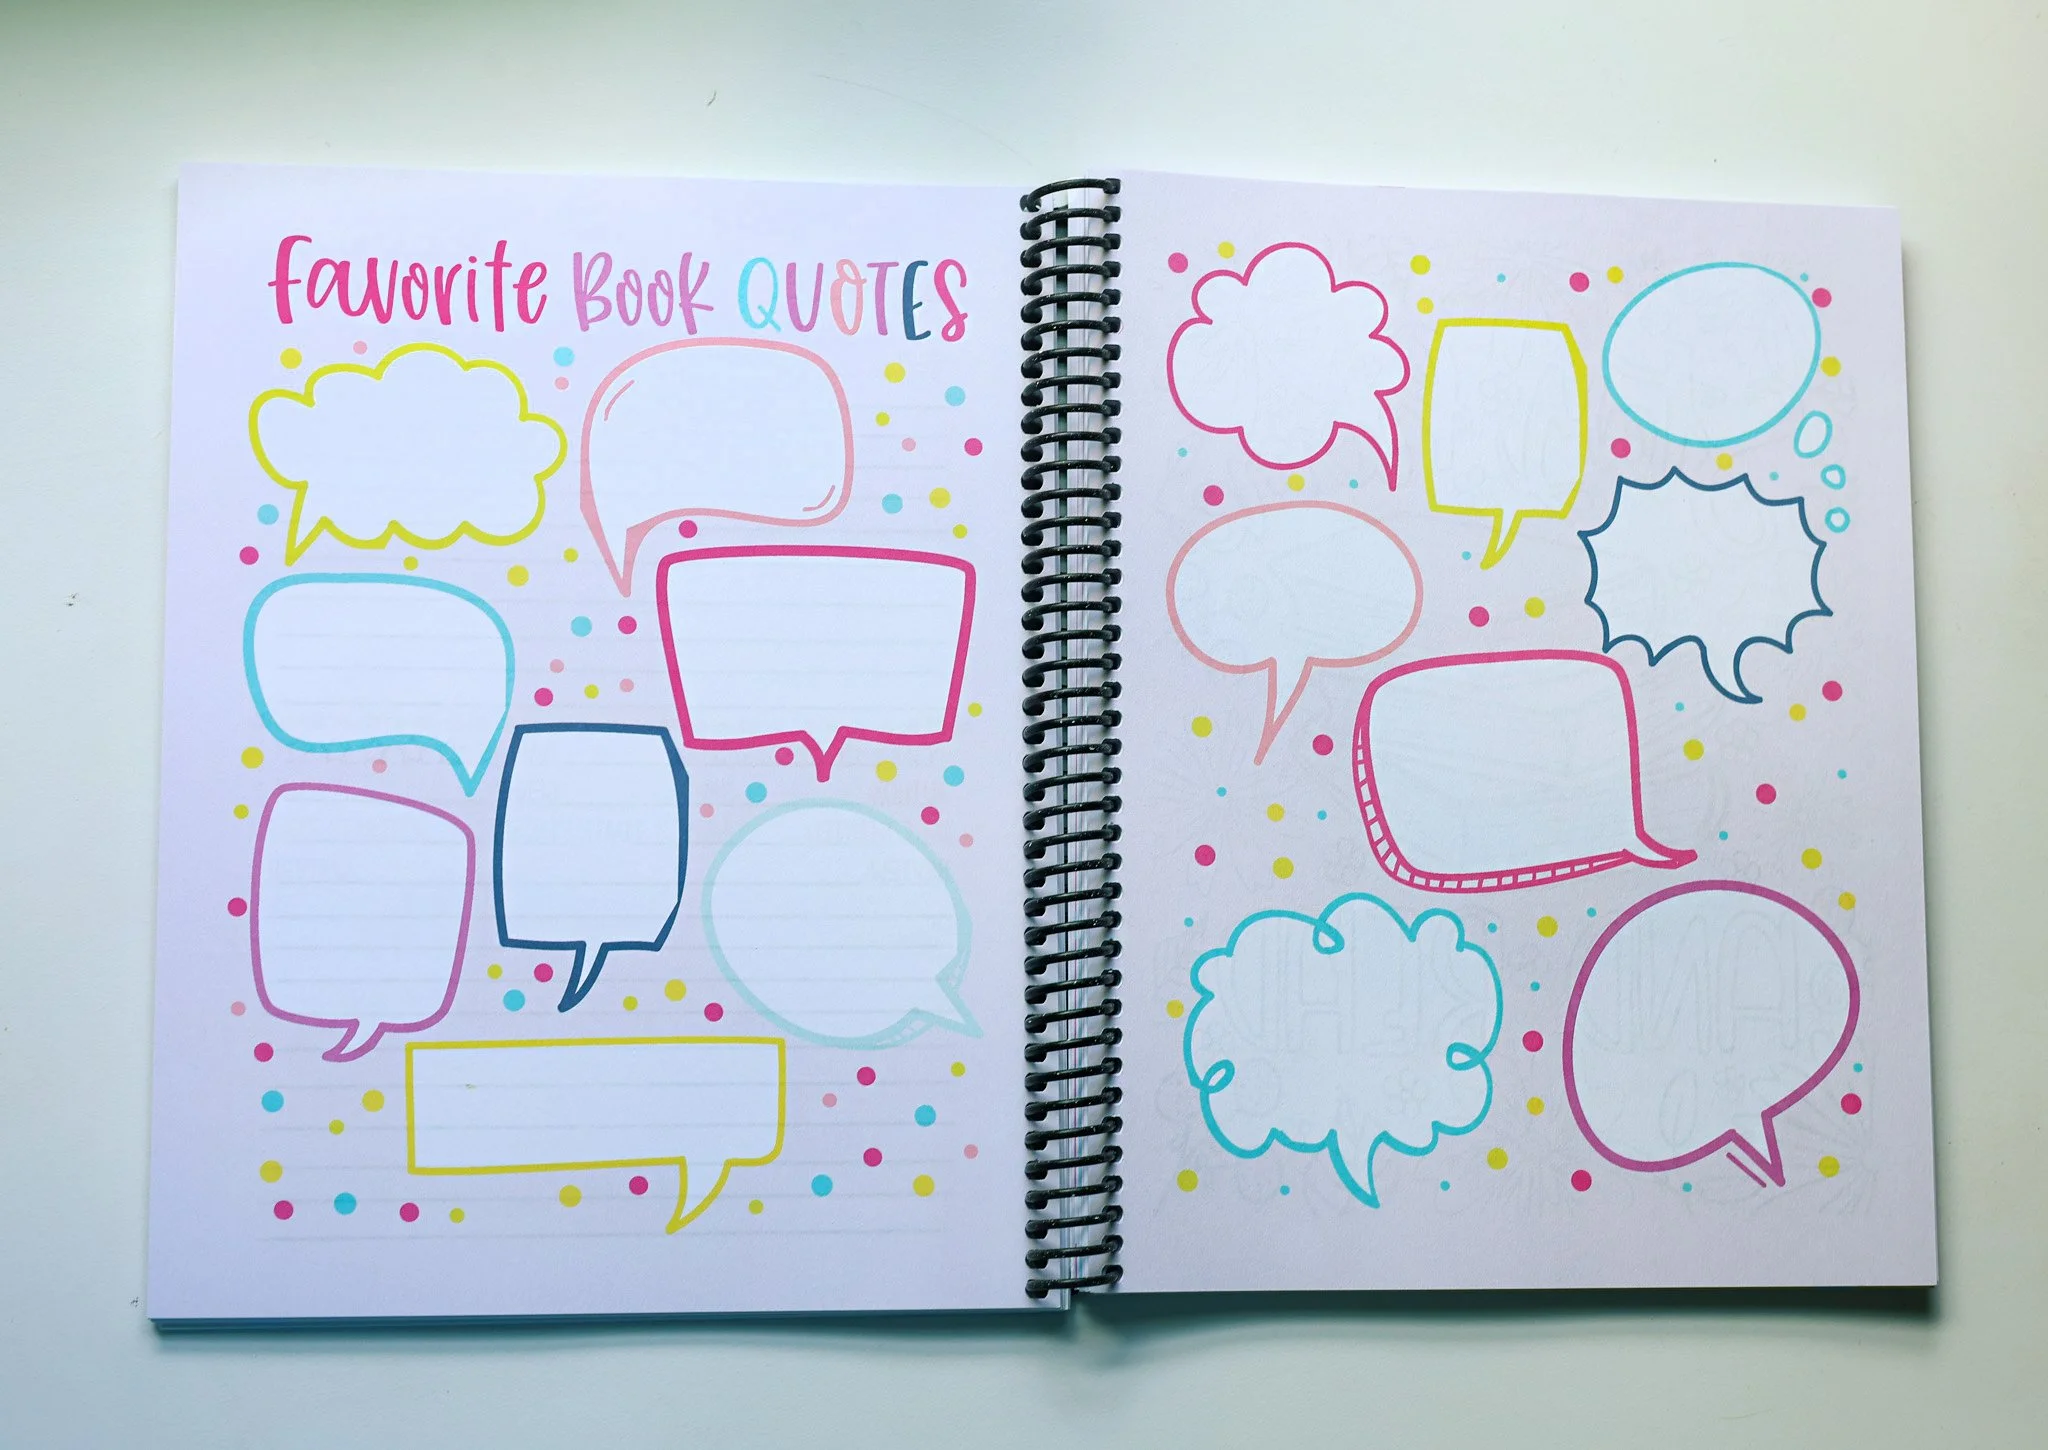 Favorite Book QUOTES